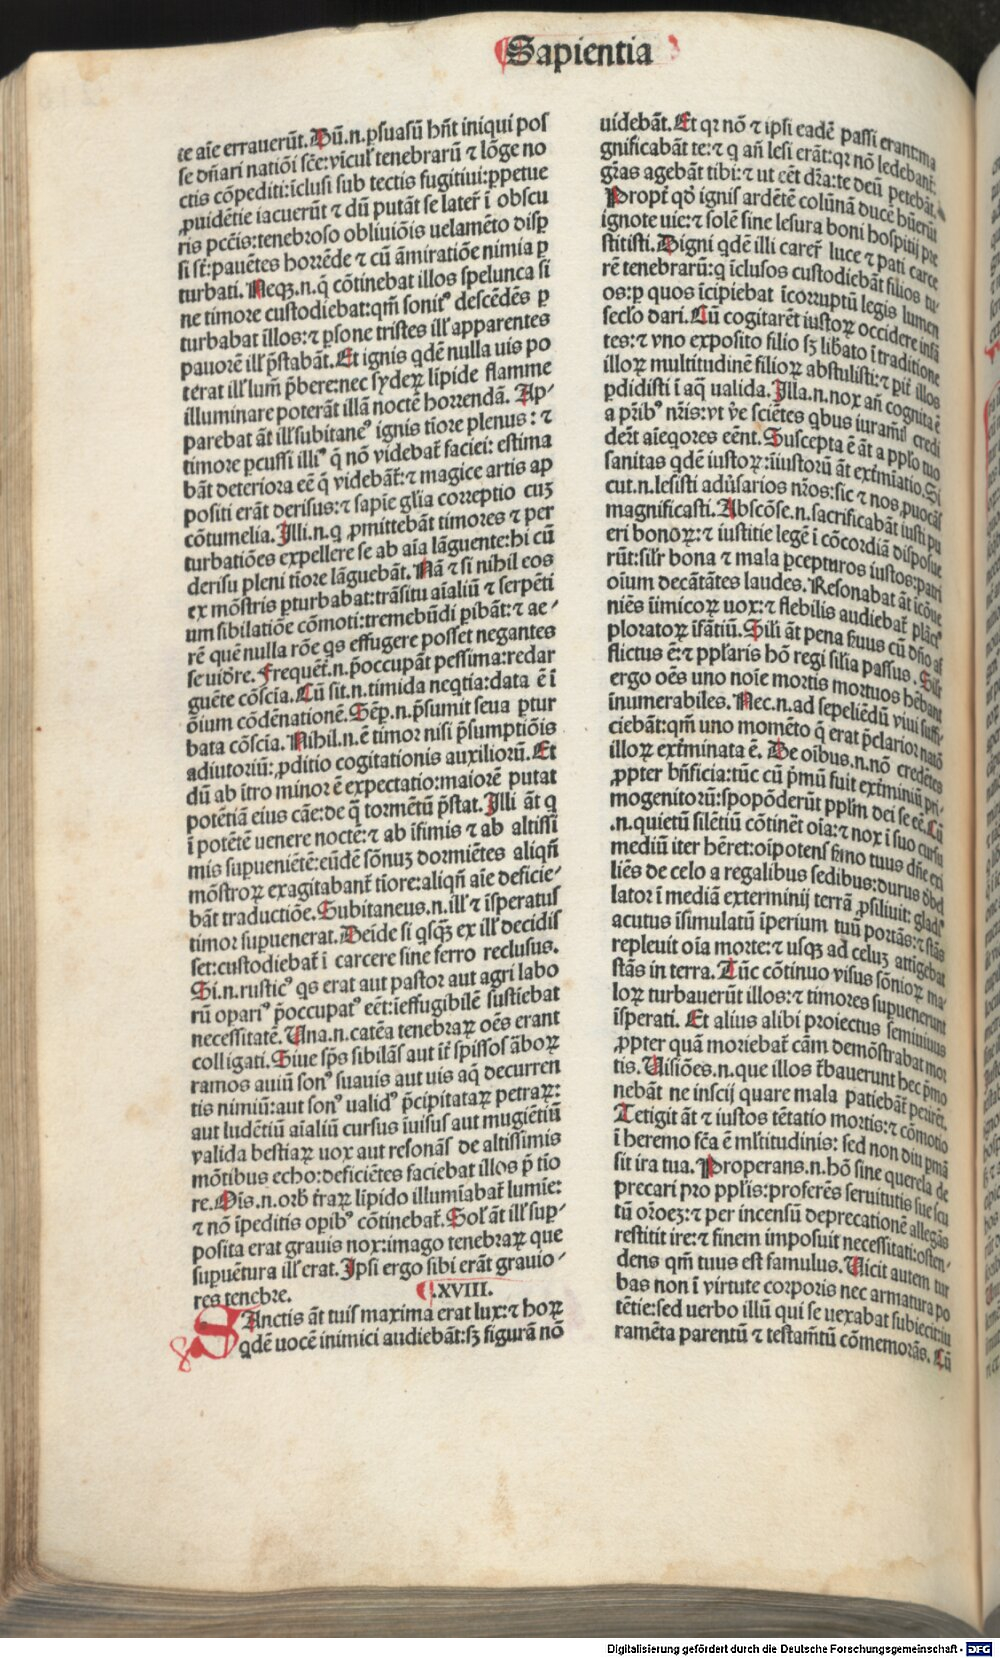 Sapientia
te aīe errauerūt. Dū.n.ꝑsuasū hn̄t iniqui pos
se dn̄ari natiōi sc̄e:vīcul' tenebrarū ⁊ lōge no
ctis cōpediti:īclusi sub tectis fugitiui:ꝑpetue
ꝓuidētie iacuerūt ⁊ dū putāt se later̄ ī obscu
ris pc̄cis:tenebroso obliuiōis uelamēto disꝑ
si st̄:pauētes horrēde ⁊ cū āmiratiōe nimia ꝑ
turbati. Neqꝫ.n.q̄ cōtinebat illos spelunca si
ne timore custodiebat:qm̄ sonitꝰ descēdēs ꝑ
turbabat illos:⁊ ꝑsone tristes ill' apparentes
pauorē ill' p̄stabāt. Et ignis qdē nulla uis po
terat ill' lum̄ p̄bere:nec syderꝝ līpide flamme
illuminare poterāt illā noctē horrendā. Ap-
parebat āt ill' subitaneꝰ ignis tiore plenus: ⁊
timore ꝑcussi illiꝰ q̄ nō videbat̄ faciei: estima
bāt deteriora eē q̄ videbāt̄:⁊ magice artis ap
positi erāt derisus:⁊ sapīe gl̄ia correptio cuꝫ
cōtumelia. Illi.n.q ꝓmittebāt timores ⁊ per
turbatiōes expellere se ab aīa lāguente:hi cū
derisu pleni tiore lāguebāt. Nā ⁊ si nihil eos
ex mōstris ꝑturbabat:trāsitu aīaliū ⁊ serpēti
um sibilatiōe cōmoti:tremebūdi ꝑibāt:⁊ ae-
rē quē nulla rōe qs effugere posset negantes
se uidre. Frequēt̄.n.p̄occupāt pessima:redar
guēte cōscīa. Cū sit.n.timida neqtia:data ē ī
oīum cōdēnationē. Sēꝑ.n.p̄sumit seua ꝑtur
bata cōscīa. Nihil.n.ē timor nisi p̄sumptiōis
adiutoriū: ꝓditio cogitationis auxiliorū. Et
dū ab ītro minor ē expectatio:maiorē putat
potētiā eius cāe:de q̄ tormētū p̄stat. Illi āt q
ī potētē venere noctē:⁊ ab īfimis ⁊ ab altissi
mis supueniētē:eūdē sōnuꝫ dormiētes aliqn̄
mōstroꝝ exagitabant̄ tiore:aliqn̄ aīe deficie-
bāt traductiōe. Subitaneus.n.ill' ⁊ īsperatus
timor supuenerat. Deīde si qsqꝫ ex ill' decidis
set:custodiebat̄ ī carcere sine ferro reclusus.
Si.n.rusticꝰ qs erat aut pastor aut agri labo
rū opariꝰ p̄occupatꝰ eēt:īeffugibilē sustīebat
necessitatē. Una.n.catēa tenebraꝝ oēs erant
colligati. Siue sp̄s sibilās aut īt̄ spissos āboꝝ
ramos auiū sonꝰ suauis aut uis aq̄ decurren
tis nimiū:aut sonꝰ validꝰ p̄cipitataꝝ petraꝝ:
aut ludētiū aīaliū cursus īuisus aut mugiētiū
valida bestiaꝝ uox aut resonās de altissimis
mōtibus echo:deficiētes faciebat illos p̄ tio
re. Oīs.n.orbꝰ t̄raꝝ līpido illumīabat̄ lumīe:
⁊ nō īpeditis opibꝰ cōtinebat̄. Sol' āt ill' sup-
posita erat grauis nox:imago tenebraꝝ que
supuētura ill' erat. Ipsi ergo sibi erāt grauio-
res tenebre. .XVIII.
SAnctis āt tuis maxima erat lux:⁊ hoꝝ
qdē uocē inimici audiebāt:sꝫ figurā nō
uidebāt. Et qꝛ nō ⁊ ipsi eadē passi erant:ma
gnificabāt te:⁊ q an̄ lesi erāt:qꝛ nō ledebant̄:
gr̄as agebāt tibi:⁊ ut eēt dr̄a:te deū petebāt.
Propt̄ qd̄ ignis ardētē colūnā ducē hūerūt
ignote uie:⁊ solē sine lesura boni hospitij pre
stitisti. Digni qdē illi carer̄ luce ⁊ pati carce
rē tenebrarū:q īclusos custodiebāt filios tu-
os:ꝑ quos īcipiebat īcorruptū legis lumen
seclo dari. Cū cogitarēt iustoꝝ occidere infā
tes:⁊ vno exposito filio sꝫ libato ī traditione
illoꝝ multitudinē filioꝝ abstulisti:⁊ pit̄ illos
ꝑdidisti ī aq̄ valida. Illa.n.nox an̄ cognita ē
a p̄ribꝰ nr̄is:vt ve sciētes qbus iuram̄ credi
der̄t aīeqores eēnt. Suscepta ē āt a pplo tuo
sanitas qdē iustoꝝ:īiustorū āt ext̄mīatio. Si
cut.n.lesisti adūsarios nr̄os:sic ⁊ nos ꝓuocās
magnificasti. Abscōse.n.sacrificabāt iusti pu
eri bonoꝝ:⁊ iustitie legē ī cōcordiā disposue
rūt:silr bona ⁊ mala ꝑcepturos iustos:patri
oīum decātātes laudes. Resonabat āt īcōue
niēs īimicoꝝ uox:⁊ flebilis audiebat̄ plāctꝰ
ploratoꝝ īfātiū. Sili āt pena s̄uus cū dn̄o af
flictus ē:⁊ pplaris hō regi silia passus. Silr
ergo oēs uno noīe mortis mortuos hēbant
īnumerabiles. Nec.n.ad sepeliēdū viui suffi
ciebāt:qm̄ uno momēto q̄ erat p̄clarior natō
illoꝝ ext̄minata ē. De oībus.n.nō credētes
ꝓpter bn̄ficia:tūc cū p̄mū fuit ext̄miniū pri-
mogenitorū:spopōderūt pplm dei se eē. Cū
.n.quietū silētiū cōtinēt oīa:⁊ nox ī suo cursu
mediū iter hēret:oīpotens s̄mo tuus dn̄e exi
liēs de celo a regalibus sedibus:durus d̄bel
lator ī mediā exterminij terrā ꝓsiliuit: gladiꝰ
acutus īsimulatū īperium tuū portās:⁊ stās
repleuit oīa morte:⁊ usqꝫ ad celuꝫ attigebat
stās in terra. Tūc cōtinuo visus sōnioꝝ ma-
loꝝ turbauerūt illos:⁊ timores supuenerunt
īsperati. Et alius alibi proiectus seminiuus
ꝓpter quā moriebat̄ cām demōstrabat mor
tis. Uisiōes.n.que illos t̄bauerunt hec p̄mo
nebāt ne inscij quare mala patiebāt̄ perirēt.
Tetigit āt ⁊ iustos tētatio mortis:⁊ cōmotio
ī heremo fc̄a ē ml̄titudinis: sed non diu p̄mā
sit ira tua. Properans.n.hō sine querela de
precari pro pplis:proferēs seruitutis sue scu
tū oroeꝫ:⁊ per incensū deprecationē allegās
restitit ire:⁊ finem imposuit necessitati:osten-
dens qm̄ tuus est famulus. Uicit autem tur
bas non ī virtute corporis nec armatura po
tētie:sed uerbo illū qui se uexabat subiecit:iu
ramēta parentū ⁊ testam̄tū cōmemorās. Cū
Digitalisierung gefördert durch die Deutsche Forschungsgemeinschaft - DFG